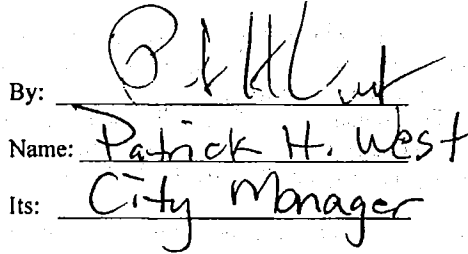 By:
Name: Patrick H. West
Its: City Manager